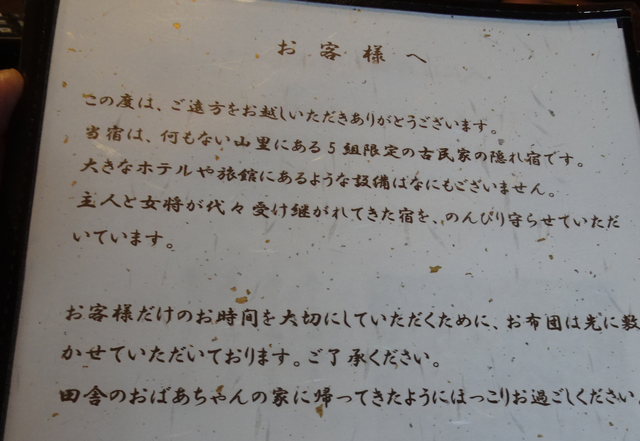 お客様へ
この度は、ご遠方をお越しいただきありがとうございます。
当宿は、何もない山里にある5組限定の古民家の隠れ宿です。
大きなホテルや旅館にあるような設備はなにもございません。
主人と女将が代々受け継がれてきた宿を、のんびり守らせていただ
いています。
お客様だけのお時間を大切にしていただくために、お布団は先に敷
かせていただいております。ご了承ください。
田舎のおばあちゃんの家に帰ってきたようにほっこりお過ごしください。